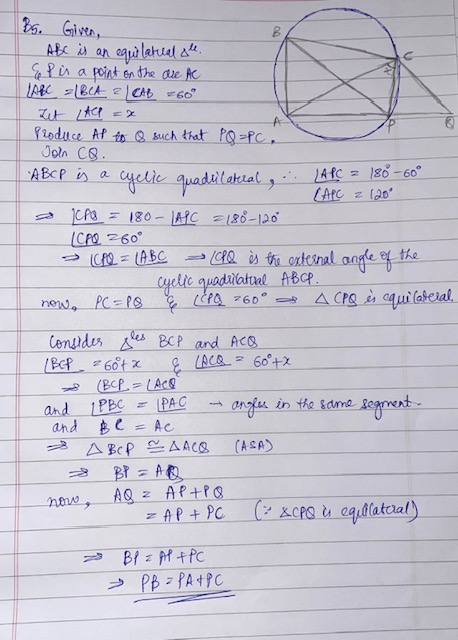 B5. Given,
ABC is an equilateral Δle.
& P is a point on the arc AC
∠ABC = ∠BCA = ∠CAB = 60°
Let ∠ACP = x
Produce AP to Q such that PQ = PC.
Join CQ.
B
C
x
A
P
Q
ABCP is a cyclic quadrilateral, ∴ ∠APC = 180° - 60°
∠APC = 120°
⇒ ∠CPQ = 180 - ∠APC = 180 - 120°
∠CPQ = 60°
⇒ ∠CPQ = ∠ABC ⇒ ∠CPQ is the external angle of the
cyclic quadrilateral ABCP.
now, PC = PQ & ∠CPQ = 60° ⇒ Δ CPQ is equilateral.
Consider Δles BCP and ACQ
∠BCP = 60° + x & ∠ACQ = 60° + x
⇒ ∠BCP = ∠ACQ
and ∠PBC = ∠PAC → angles in the same segment.
and BC = AC
⇒ Δ BCP ≅ Δ ACQ (ASA)
⇒ BP = AQ
now, AQ = AP + PQ
= AP + PC (∵ ΔCPQ is equilateral)
⇒ BP = AP + PC
⇒ PB = PA + PC